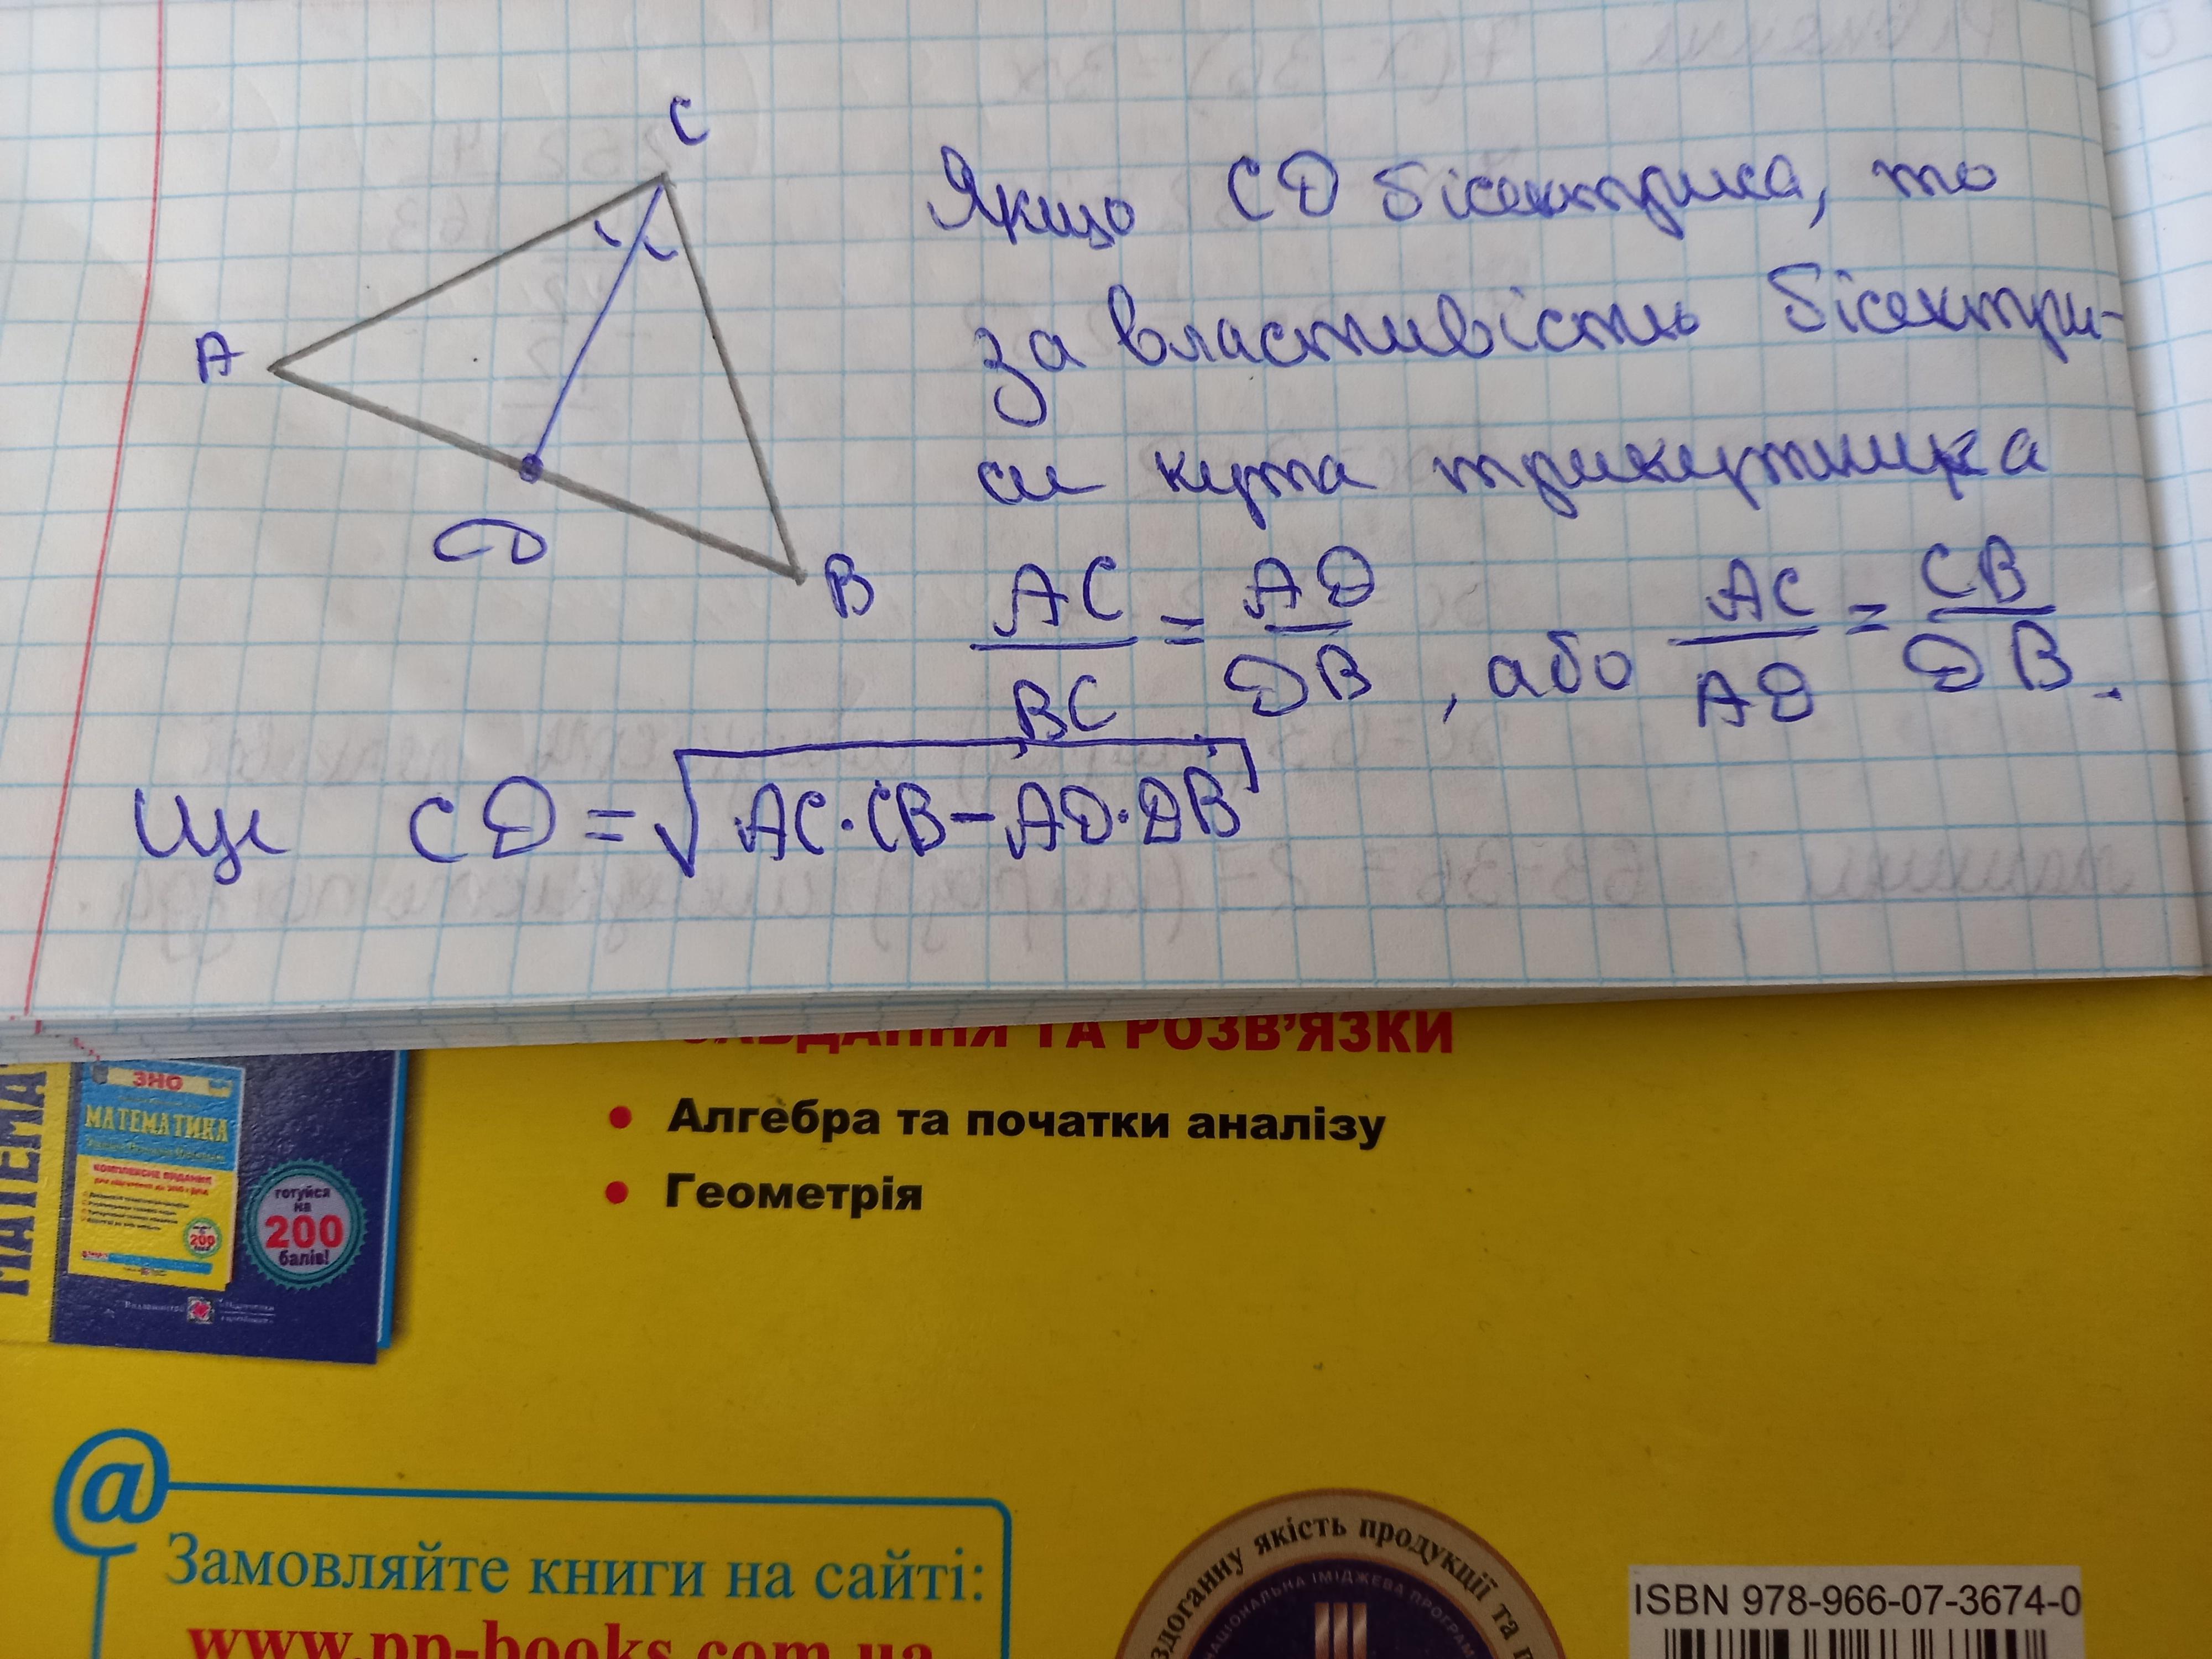 C
A
D
B
Якщо CD бісектриса, то
за властивістю бісектри-
си кута трикутника
AC/BC = AD/DB, або AC/AD = CB/DB.
Ще CD = √AC·CB−AD·DB
ЗАВДАННЯ ТА РОЗВ'ЯЗКИ
• Алгебра та початки аналізу
• Геометрія
МАТЕМА
ЗНО
МАТЕМАТИКА
КОМПЛЕКСНЕ ВИДАННЯ
200
готуйся
на
200
балів!
@
Замовляйте книги на сайті:
www.pp-books.com.ua
здоганну якість продукції та п
НАЦІОНАЛЬНА ІМІДЖЕВА ПРОГРАМ
ISBN 978-966-07-3674-0